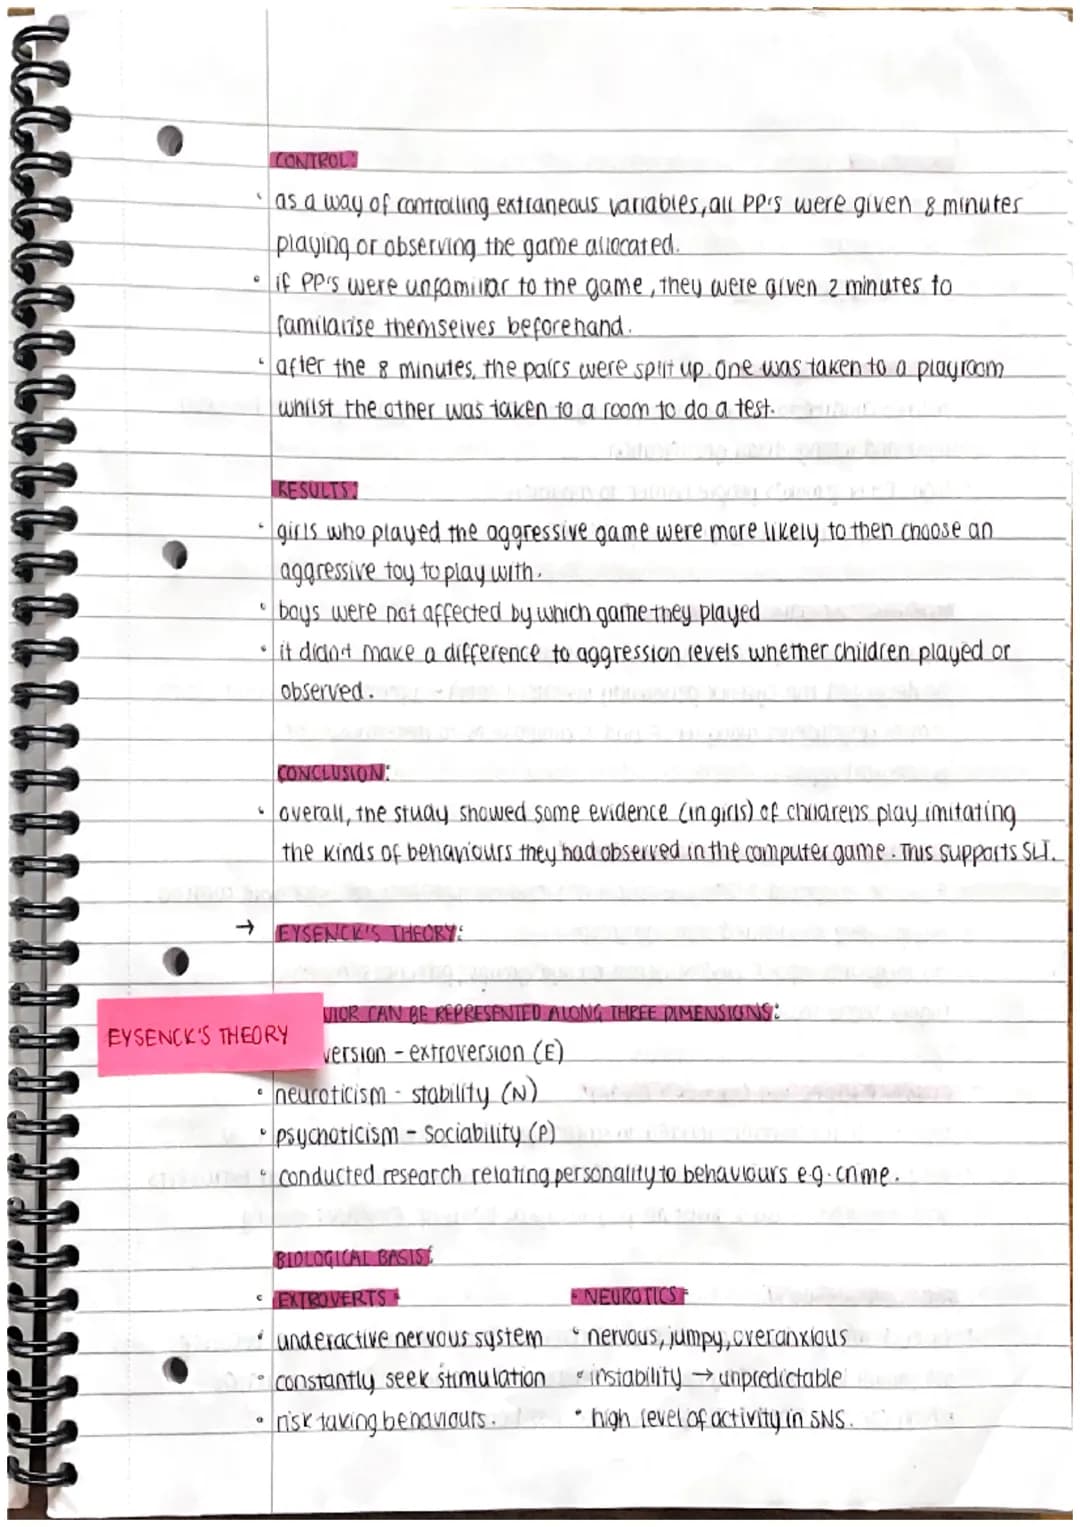 CONTROL:
as a way of controlling extraneous variables, all PP's were given 8 minutes
playing or observing the game allocated.
• if PP's were unfamiliar to the game, they were given 2 minutes to
familarise themselves beforehand.
after the 8 minutes, the pairs were split up. One was taken to a playroom
whilst the other was taken to a room to do a test.
RESULTS:
• girls who played the aggressive game were more likely to then choose an
aggressive toy to play with.
• boys were not affected by which game they played
• it didn't make a difference to aggression levels whether children played or
observed.
CONCLUSION:
• overall, the study showed some evidence (in girls) of childrens play imitating
the kinds of behaviours they had observed in the computer game. This supports SLT.
→ EYSENCK'S THEORY:
VIOR CAN BE REPRESENTED ALONG THREE DIMENSIONS:
EYSENCK'S THEORY
version - extroversion (E)
• neuroticism - stability (N)
• psychoticism - Sociability (P)
• conducted research relating personality to behaviours e.g. crime.
BIOLOGICAL BASIS:
• EXTROVERTS • • NEUROTICS •
• underactive nervous system • nervous, jumpy, overanxious
• constantly seek stimulation • instability → unpredictable
• risk taking behaviours. • high level of activity in SNS.